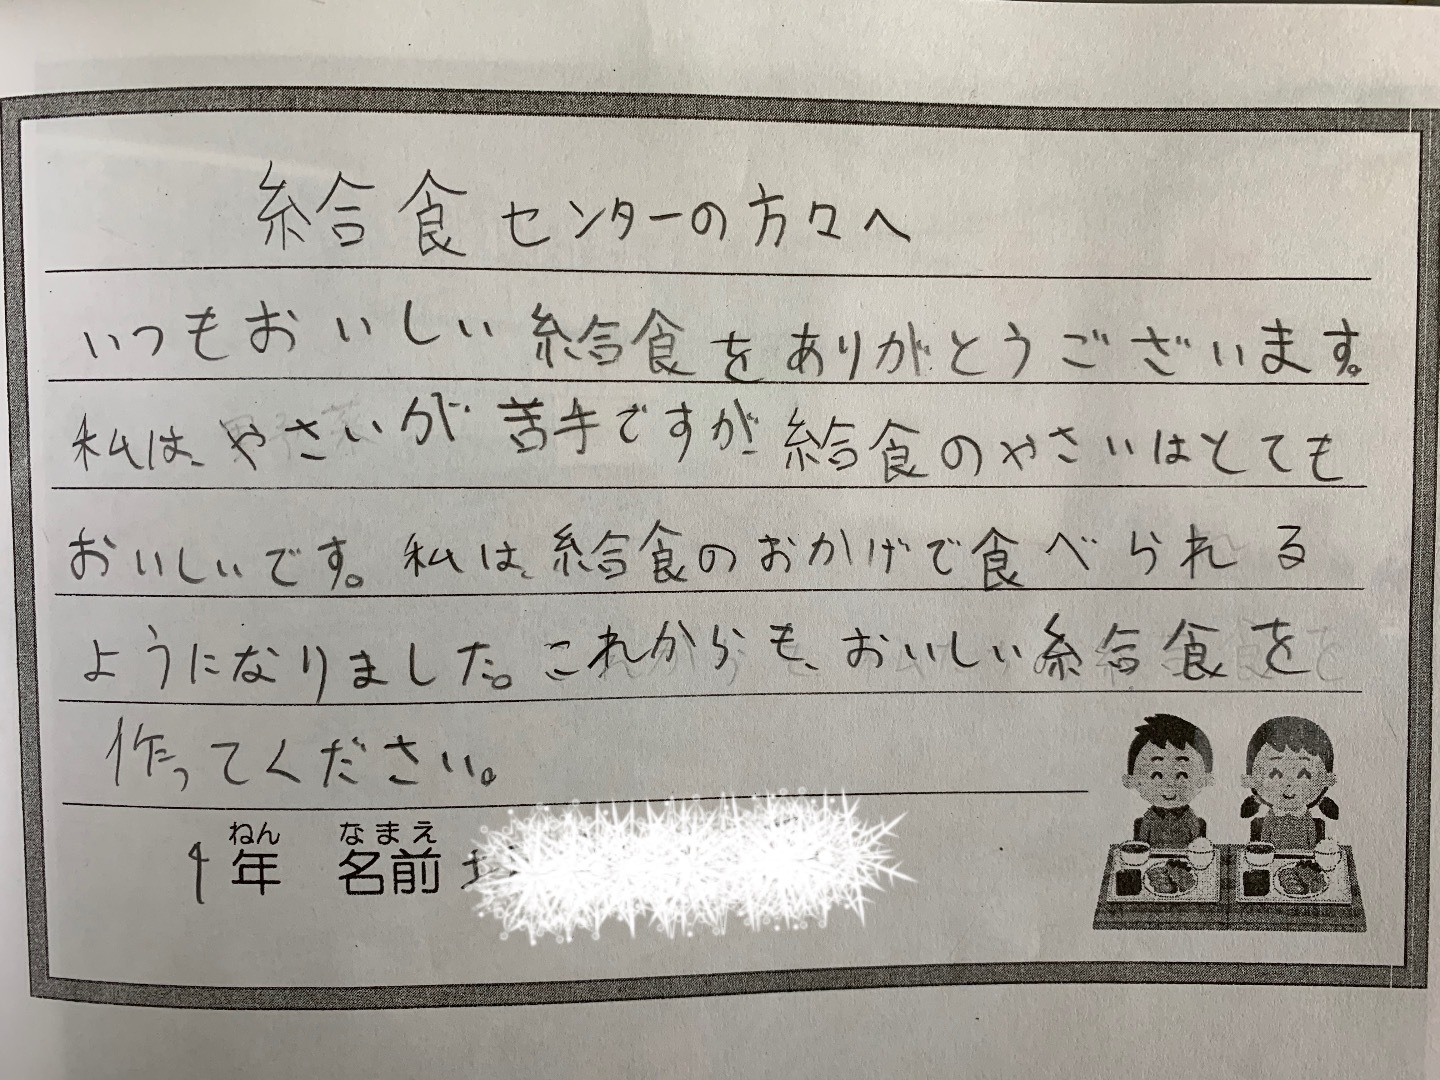 給食センターの方々へ
いつもおいしい給食をありがとうございます。
私は、やさいが苦手ですが、給食のやさいはとても
おいしいです。私は、給食のおかげで食べられる
ようになりました。これからも、おいしい給食を
作ってください。
ねん なまえ
4年 名前